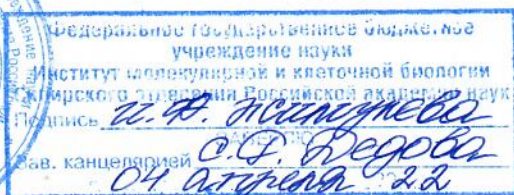 Федеральное государственное бюджетное
учреждение науки
Институт молекулярной и клеточной биологии
Сибирского отделения Российской академии наук
Подпись И.Ф. Жимулева
ЗАВЕРЯЮ
Зав. канцелярией С.Ф. Дедова
04 апреля 22